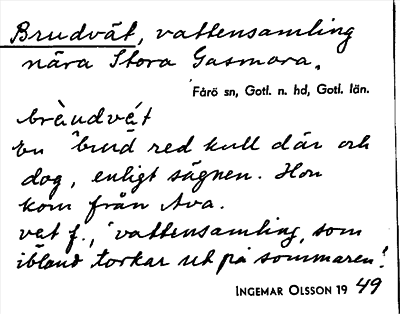 Brudvät, vattensamling
nära Stora Gasmora.
Fårö sn, Gotl. n. hd, Gotl. län.
bràudve̍t
En "brud red kull där och
dog, enligt sägnen. Hon
kom från Ava.
vät f., "vattensamling, som
ibland torkar ut på sommaren!
INGEMAR OLSSON 19 49